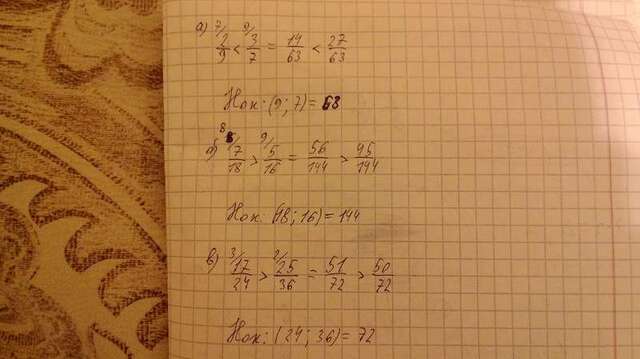 а) 7/ 2/9 < 9/ 3/7 = 14/63 < 27/63
Нок: (9; 7) = 63
б) 8/ 7/18 > 9/ 5/16 = 56/144 > 45/144
Нок (18; 16) = 144
в) 3/ 17/24 > 2/ 25/36 = 51/72 > 50/72
Нок: (24; 36) = 72